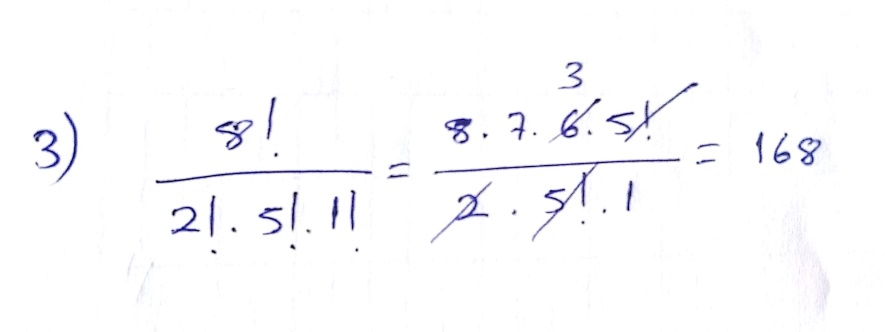 3) 8! / 2! . 5! . 1! = 8 . 7 . 6 3 . 5! / 2 . 5! . 1 = 168